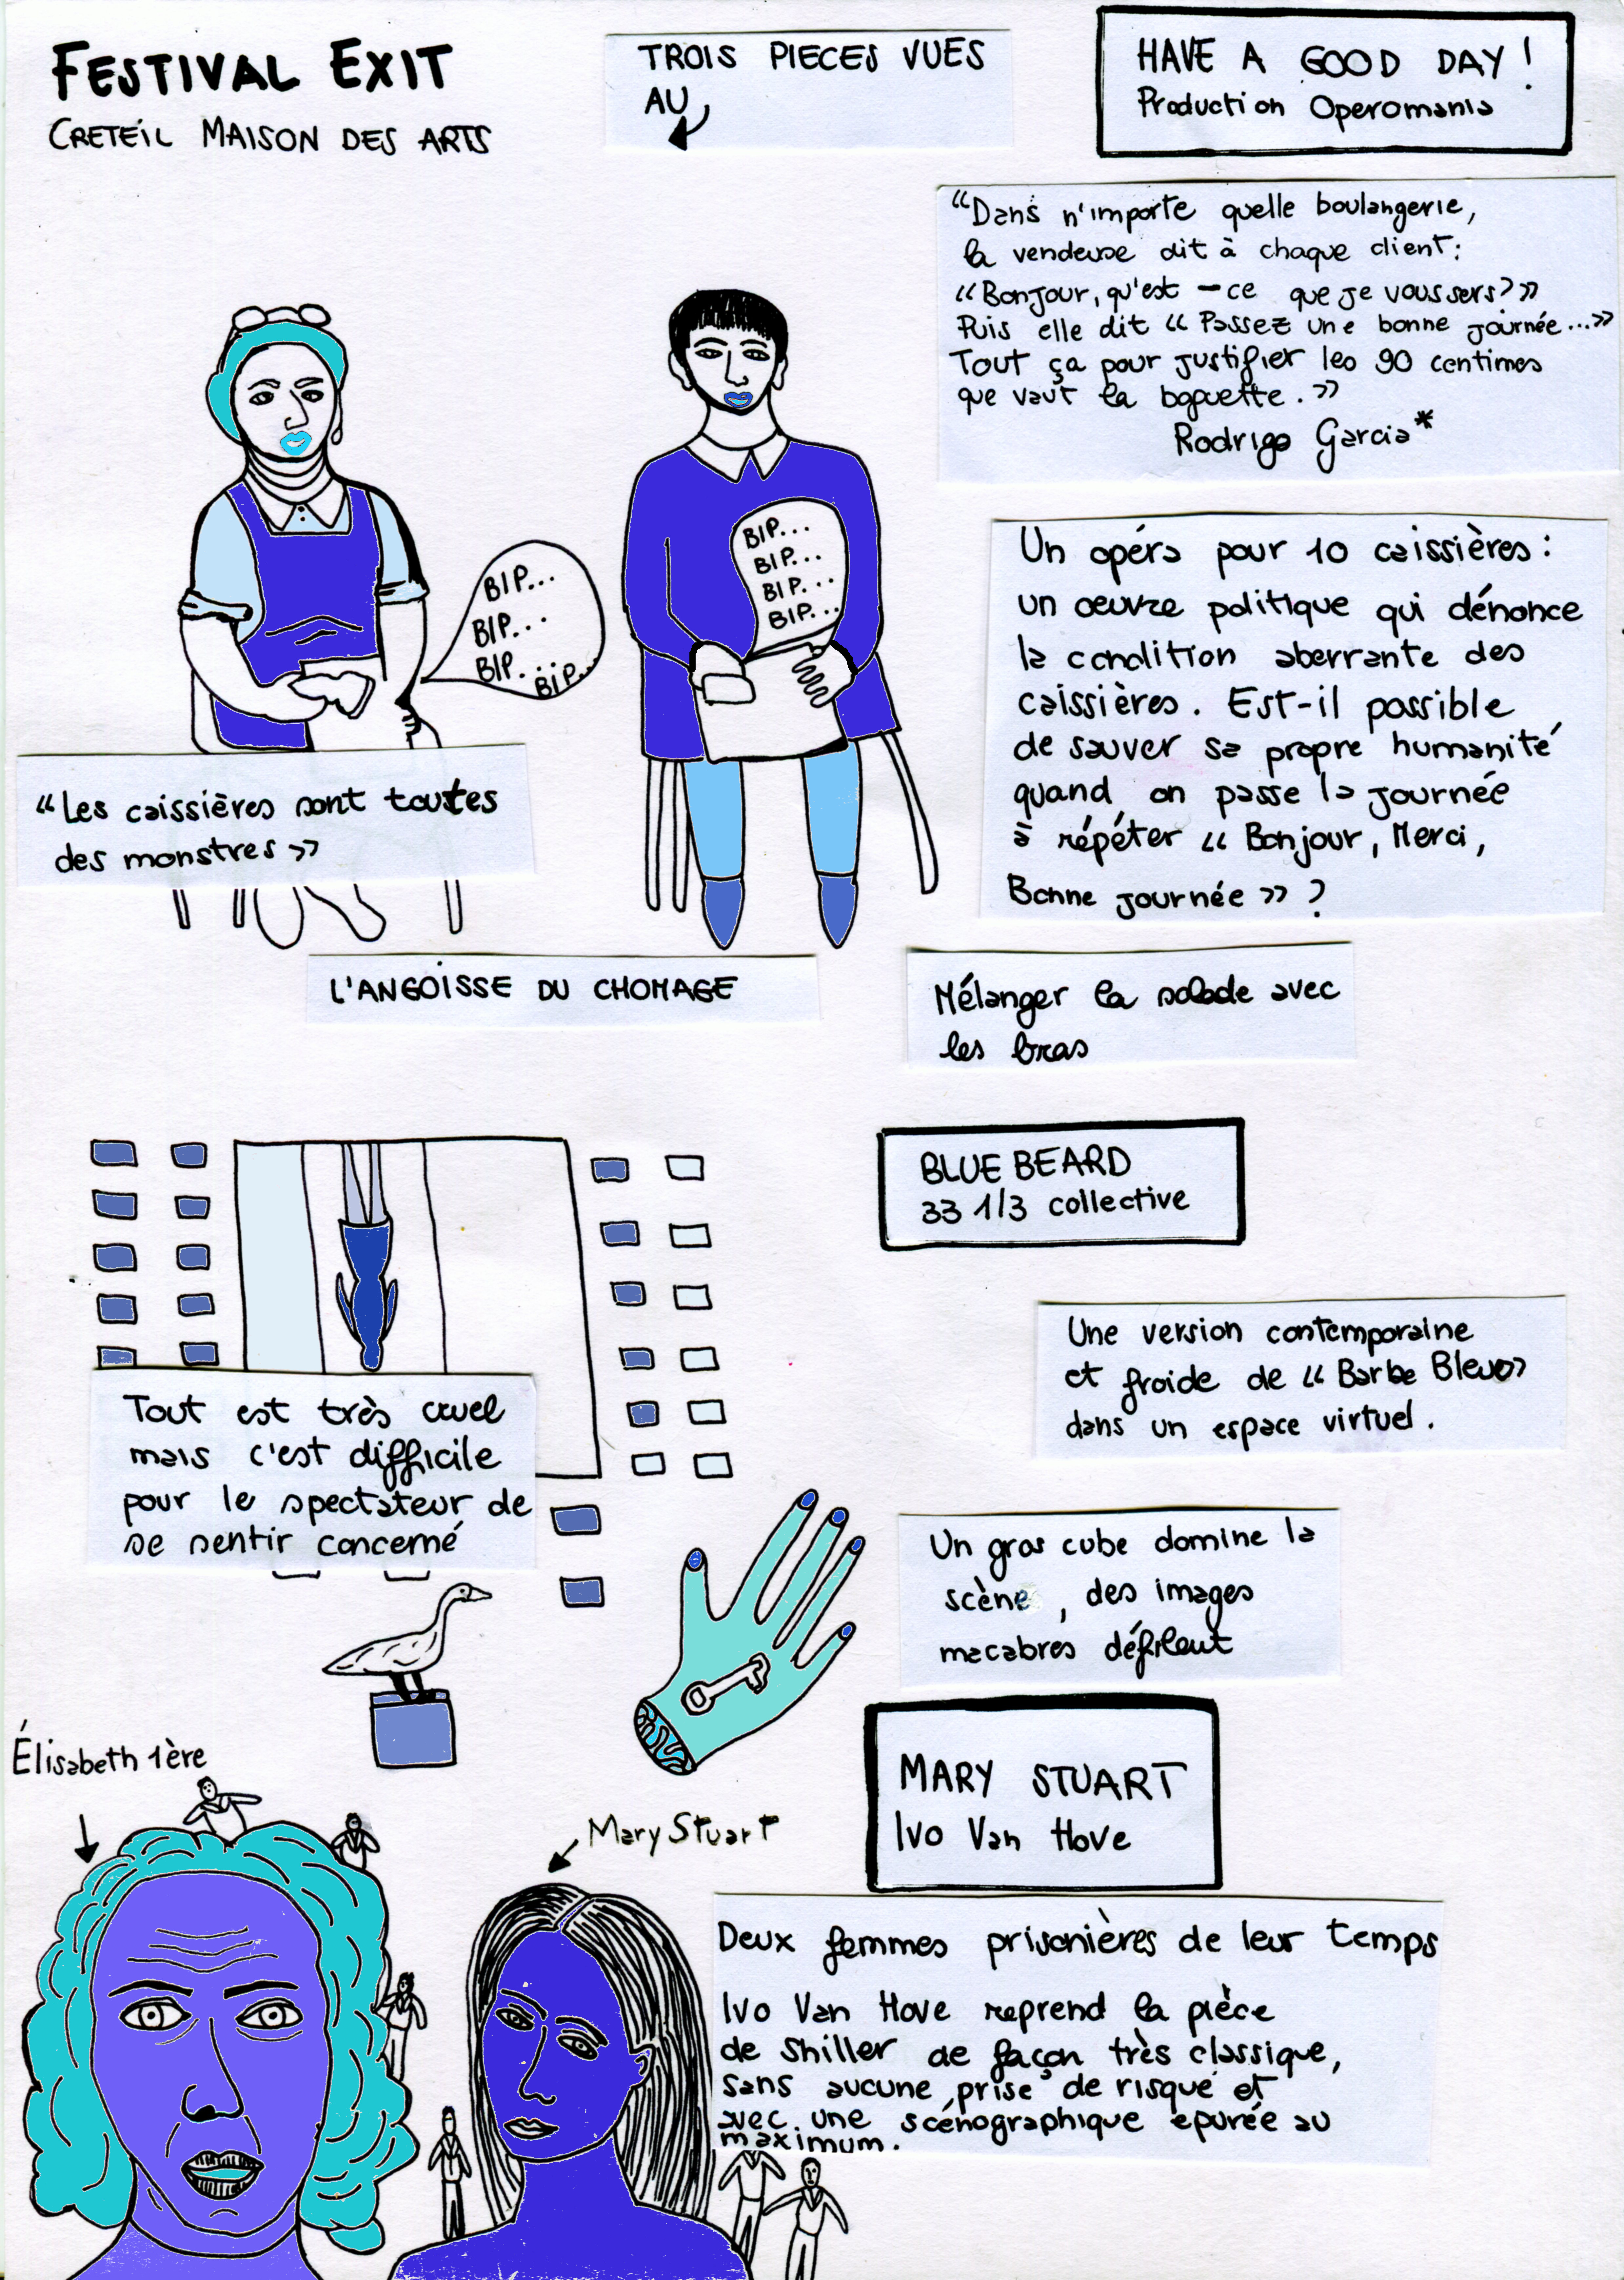 FESTIVAL EXIT
CRETEIL MAISON DES ARTS
TROIS PIECES VUES
AU
HAVE A GOOD DAY !
Production Operomania
“Dans n'importe quelle boulangerie,
la vendeuse dit à chaque client :
« Bonjour, qu'est-ce que je vous sers ? »
Puis elle dit « Passez une bonne journée... »
Tout ça pour justifier les 90 centimes
que vaut la baguette. »
Rodrigo Garcia*
BIP...
BIP...
BIP...
BIP...
BIP...
BIP...
BIP...
BIP...
Un opéra pour 10 caissières :
un œuvre politique qui dénonce
la condition aberrante des
caissières. Est-il possible
de sauver sa propre humanité
quand on passe la journée
à répéter « Bonjour, Merci,
Bonne journée » ?
“Les caissières sont toutes
des monstres »
L'ANGOISSE DU CHOMAGE
Mélanger la salade avec
les bras
BLUE BEARD
33 1/3 collective
Une version contemporaine
et froide de « Barbe Bleue »
dans un espace virtuel.
Tout est très cruel
mais c'est difficile
pour le spectateur de
se sentir concerné
Un gros cube domine la
scène, des images
macabres défilent
Élisabeth 1ère
Mary Stuart
MARY STUART
Ivo Van Hove
Deux femmes prisonières de leur temps
Ivo Van Hove reprend la pièce
de Shiller de façon très classique,
sans aucune prise de risque et
avec une scénographique épurée au
maximum.